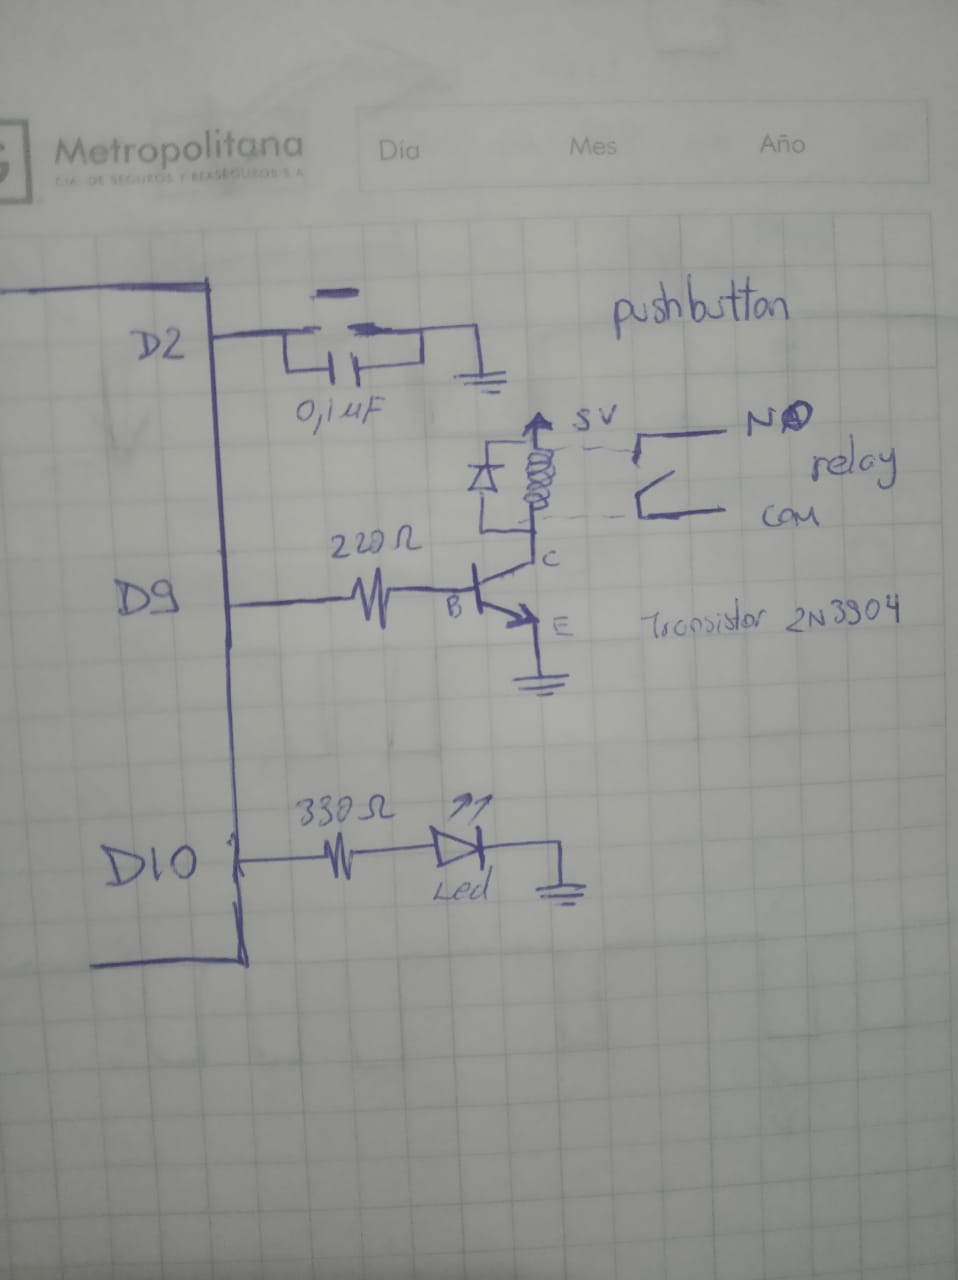 Metropolitana
CIA. DE SEGUROS Y REASEGUROS S.A
Día Mes Año
pushbutton
D2
0,1 µF
5V
NO
relay
COM
220Ω
C
D9
B
E
Transistor 2N3904
330Ω
D10
Led